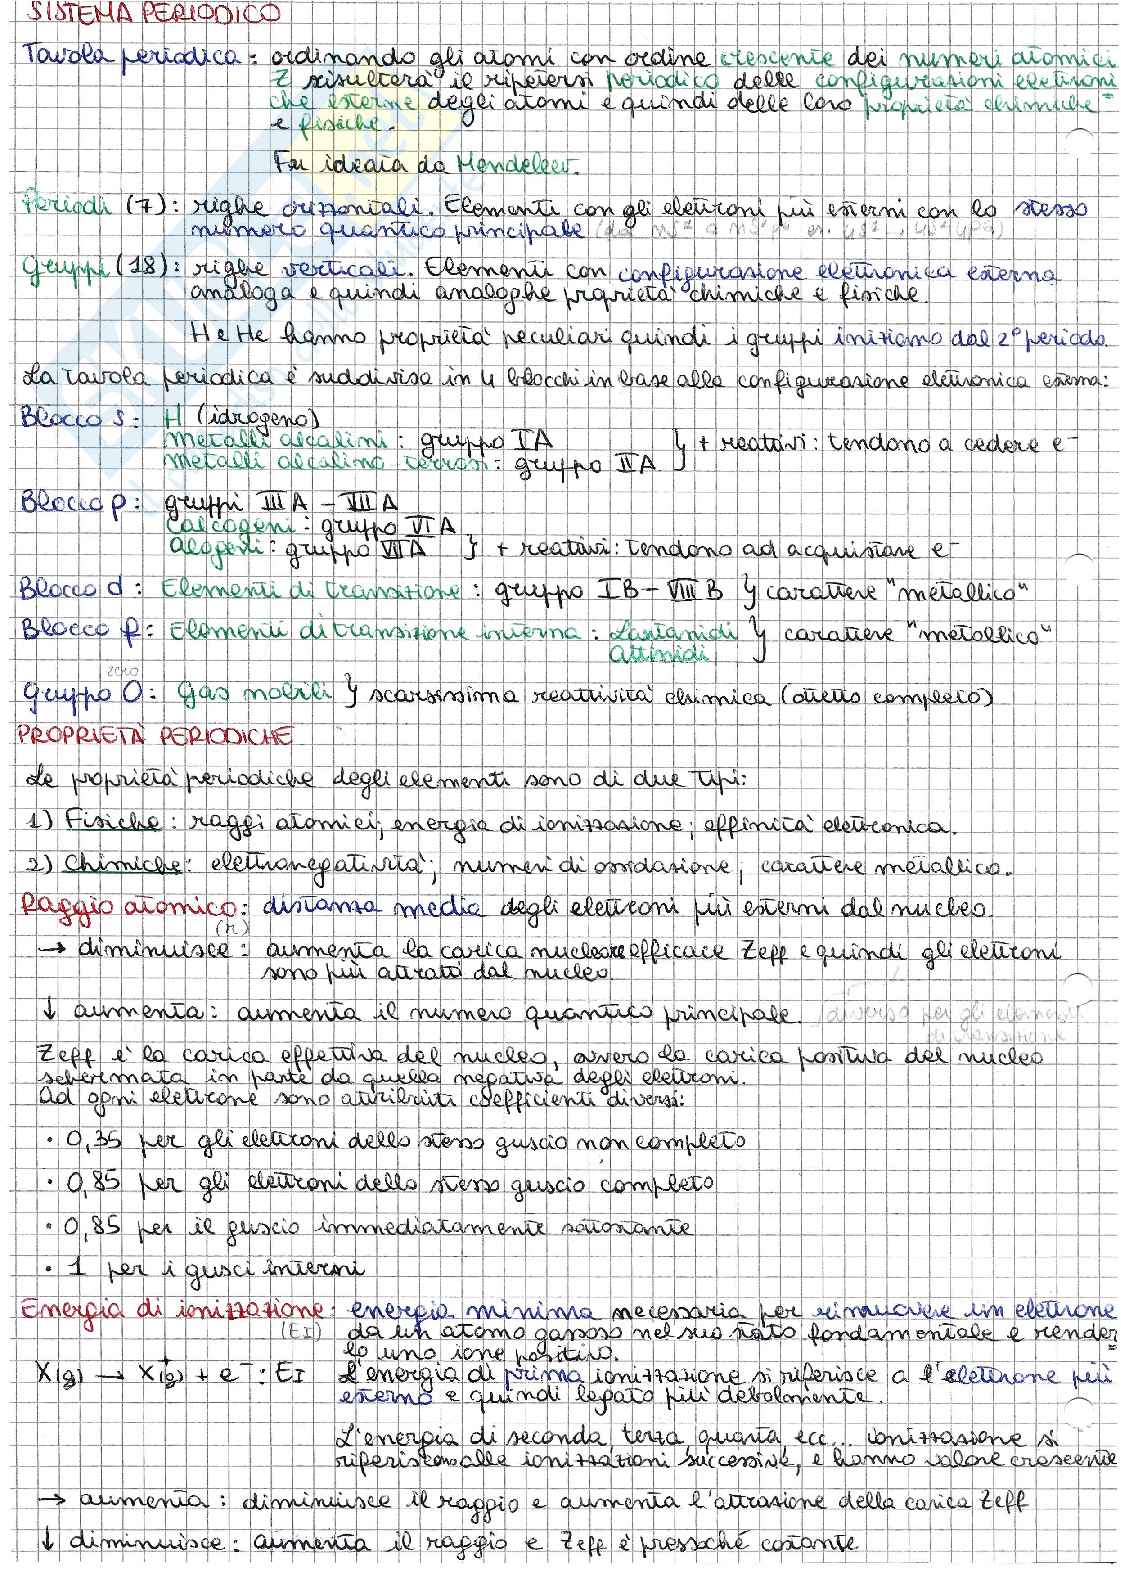 SISTEMA PERIODICO
Tavola periodica: ordinando gli atomi con ordine crescente dei numeri atomici
Z risulterà il ripetersi periodico delle configurazioni elettroni
che esterne degli atomi e quindi delle loro proprietà chimiche
e fisiche.
Fu ideata da Mendeleev.
Periodi (7): righe orizzontali. Elementi con gli elettroni più esterni con lo stesso
numero quantico principale
Gruppi (18): righe verticali. Elementi con configurazione elettronica esterna
analoga e quindi analoghe proprietà chimiche e fisiche.
H e He hanno proprietà peculiari quindi i gruppi iniziano dal 2° periodo.
La tavola periodica è suddivisa in 4 blocchi in base alla configurazione elettronica esterna:
Blocco s: H (idrogeno)
Metalli alcalini: gruppo IA } + reattivi: tendono a cedere e⁻
Metalli alcalino terrosi: gruppo IIA
Blocco p: gruppi IIIA - VIIA
Calcogeni: gruppo VIA
Alogeni: gruppo VIIA } + reattivi: tendono ad acquistare e⁻
Blocco d: Elementi di transizione: gruppo IB - VIIIB } carattere "metallico"
Blocco f: Elementi di transizione interna: Lantanidi } carattere "metallico"
Attinidi
zero
Gruppo 0: Gas nobili } scarsissima reattività chimica (ottetto completo)
PROPRIETÀ PERIODICHE
Le proprietà periodiche degli elementi sono di due tipi:
1) Fisiche: raggi atomici; energia di ionizzazione; affinità elettronica.
2) Chimiche: elettronegatività; numeri di ossidazione, carattere metallico.
Raggio atomico: distanza media degli elettroni più esterni dal nucleo.
(r)
→ diminuisce: aumenta la carica nucleare efficace Zeff e quindi gli elettroni
sono più attratti dal nucleo.
↓ aumenta: aumenta il numero quantico principale. (diverso per gli elementi
di transizione
Zeff è la carica effettiva del nucleo, ovvero la carica positiva del nucleo
schermata in parte da quella negativa degli elettroni.
Ad ogni elettrone sono attribuiti coefficienti diversi:
• 0,35 per gli elettroni dello stesso guscio non completo
• 0,85 per gli elettroni dello stesso guscio completo
• 0,85 per il guscio immediatamente sottostante
• 1 per i gusci interni
Energia di ionizzazione: energia minima necessaria per rimuovere un elettrone
(EI) da un atomo gassoso nel suo stato fondamentale e render
lo uno ione positivo.
X(g) → X⁺(g) + e⁻: EI L'energia di prima ionizzazione si riferisce a l'elettrone più
esterno e quindi legato più debolmente.
L'energia di seconda, terza, quarta, ecc... ionizzazione si
riferiscono alle ionizzazioni successive, e hanno valore crescente
→ aumenta: diminuisce il raggio e aumenta l'attrazione della carica Zeff
↓ diminuisce: aumenta il raggio e Zeff è pressoché costante